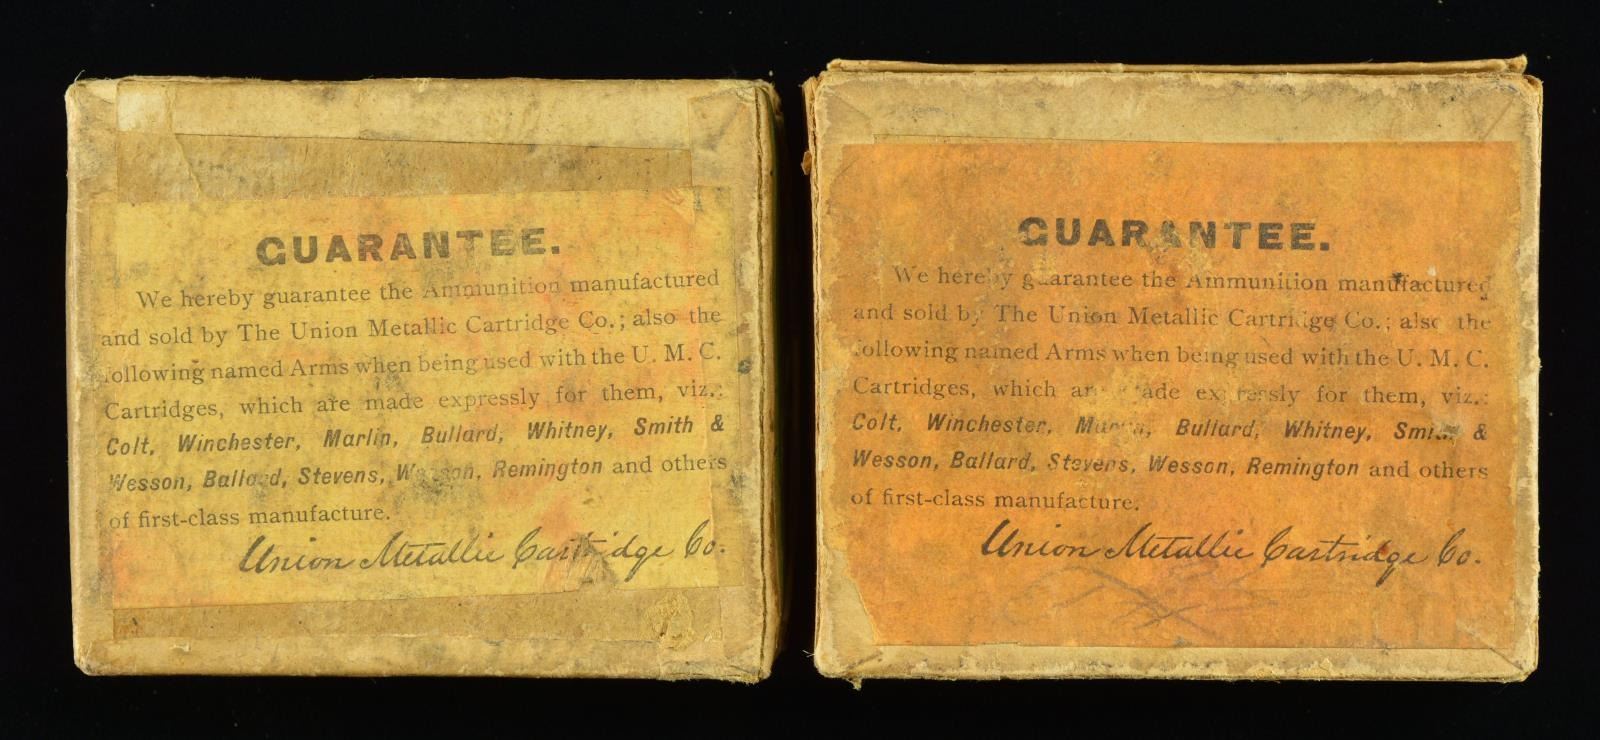 GUARANTEE.
We hereby guarantee the Ammunition manufactured
and sold by The Union Metallic Cartridge Co.; also the
following named Arms when being used with the U. M. C.
Cartridges, which are made expressly for them, viz.:
Colt, Winchester, Marlin, Bullard, Whitney, Smith &
Wesson, Ballard, Stevens, Wesson, Remington and others
of first-class manufacture.
Union Metallic Cartridge Co.
GUARANTEE.
We hereby guarantee the Ammunition manufactured
and sold by The Union Metallic Cartridge Co.; also the
following named Arms when being used with the U. M. C.
Cartridges, which are made expressly for them, viz.:
Colt, Winchester, Marlin, Bullard, Whitney, Smith &
Wesson, Ballard, Stevens, Wesson, Remington and others
of first-class manufacture.
Union Metallic Cartridge Co.